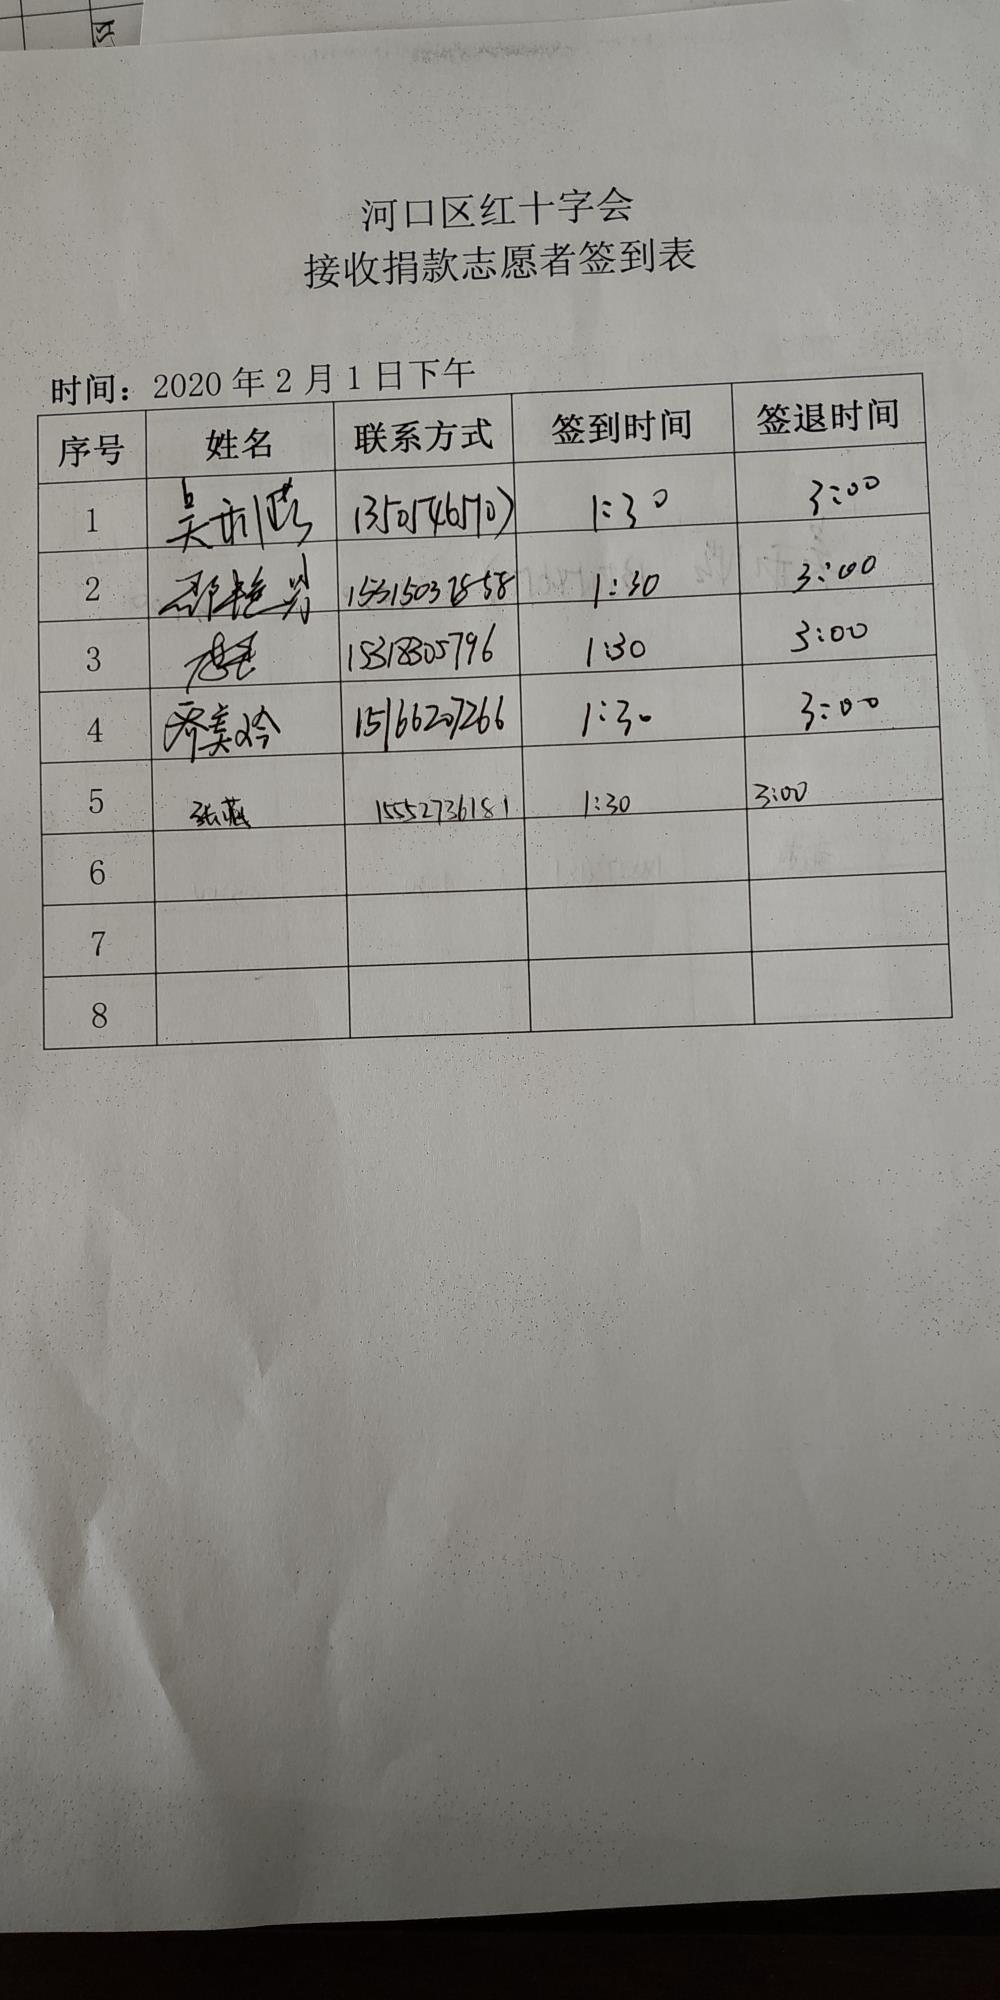 河口区红十字会
接收捐款志愿者签到表
时间：2020年2月1日下午
序号 姓名 联系方式 签到时间 签退时间
1 吴 13505465707 1:30 3:00
2 邵艳芳 15315037858 1:30 3:00
3 15318305796 1:30 3:00
4 乔美玲 15166207266 1:30 3:00
5 张燕 15552736181 1:30 3:00
6
7
8